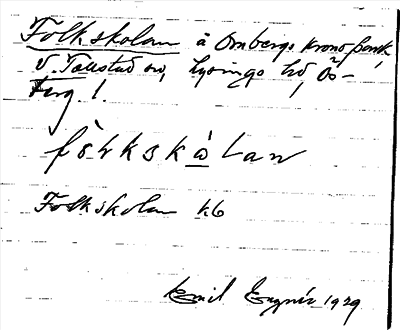 Folkskolan å Ombergs Kronopark,
V. Tollstad sn, Lysings hd, Ös-
terg.l.
fo᷄lkskωlan
Folkskolan kb
Emil 1929